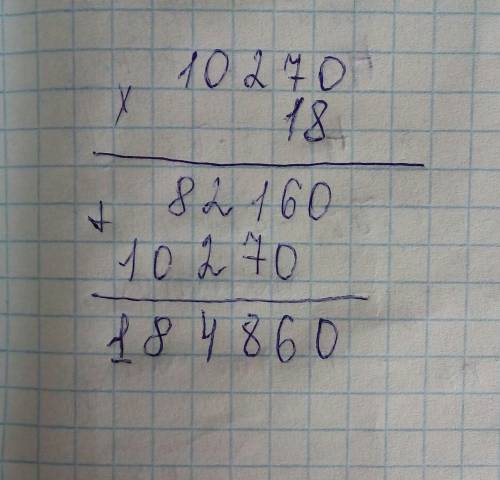 10270
x 18
+ 82160
10270
184860